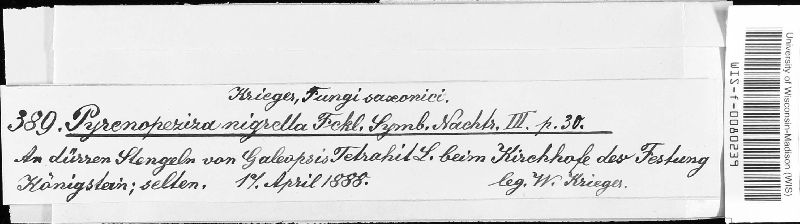 Krieger, Fungi saxonici.
389. Pyrenopeziza nigrella Fckl. Symb. Nachtr. III. p. 30.
An dürren Stengeln von Galeopsis Tetrahit L. beim Kirchhofe der Festung
Königstein; selten. 17. April 1888. leg. W. Krieger.
University of Wisconsin-Madison (WIS)
WIS-f-0080239